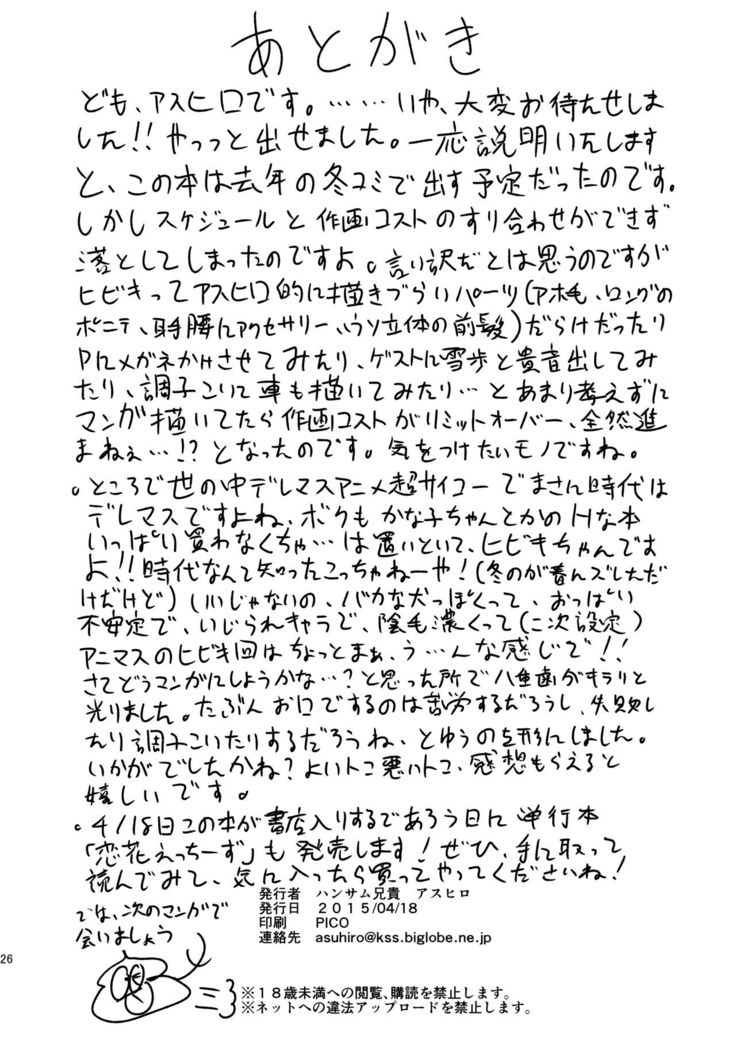 あとがき
ども、アスヒロです。……いや、大変お待たせしま
した!!やっっと出せました。一応説明いたします
と、この本は去年の冬コミで出す予定だったのです。
しかしスケジュールと作画コストのすり合わせができず
落としてしまったのですよ。言い訳だとは思うのですが
ヒビキってアスヒロ的に描きづらいパーツ(アホ毛、ロングの
ポニテ、手腰にアクセサリー、ウソ立体の前髪)だらけだったり
Pにメガネかけさせてみたり、ゲストに雪歩と貴音出してみ
たり、調子こいて車も描いてみたり…とあまり考えずに
マンガ描いてたら作画コストがリミットオーバー、全然進
まねぇ…!?となったのです。気をつけたいモノですね。
。ところで世の中デレマスアニメ超サイコーでまさん時代は
デレマスですよね、ボクもかな子ちゃんとかのHな本
いっぱい買わなくちゃ…は置いといて、ヒビキちゃんです
よ!!時代なんて知ったこっちゃねーや!(冬のが着んズしただ
けだけど)いいじゃないの、バカな犬っぽくって、おっぱい
不安定で、いじられキャラで、陰毛濃くって(二次設定)
アニマスのヒビキ回はちょっとまぁ、う…んな感じで!!
さてどうマンガにしようかな…?と思った所で八重歯がキラりと
光りました。たぶんお口でするのは苦労するだろうし、失敗し
たり調子こいたりするだろうね、とゆうのを形にしました。
いかがでしたかね?よいトコ悪いトコ、感想もらえると
嬉しいです。
。4/18日この本が書店入りするであろう日に単行本
「恋花えっちーず」も発売します!ぜひ、手に取って
読んでみて、気に入ったら買ってやってくださいね!
では、次のマンガで
会いましょう
発行者 ハンサム兄貴 アスヒロ
発行日 2015/04/18
印刷 PICO
連絡先 asuhiro@kss.biglobe.ne.jp
26
※18歳未満への閲覧、購読を禁止します。
※ネットへの違法アップロードを禁止します。